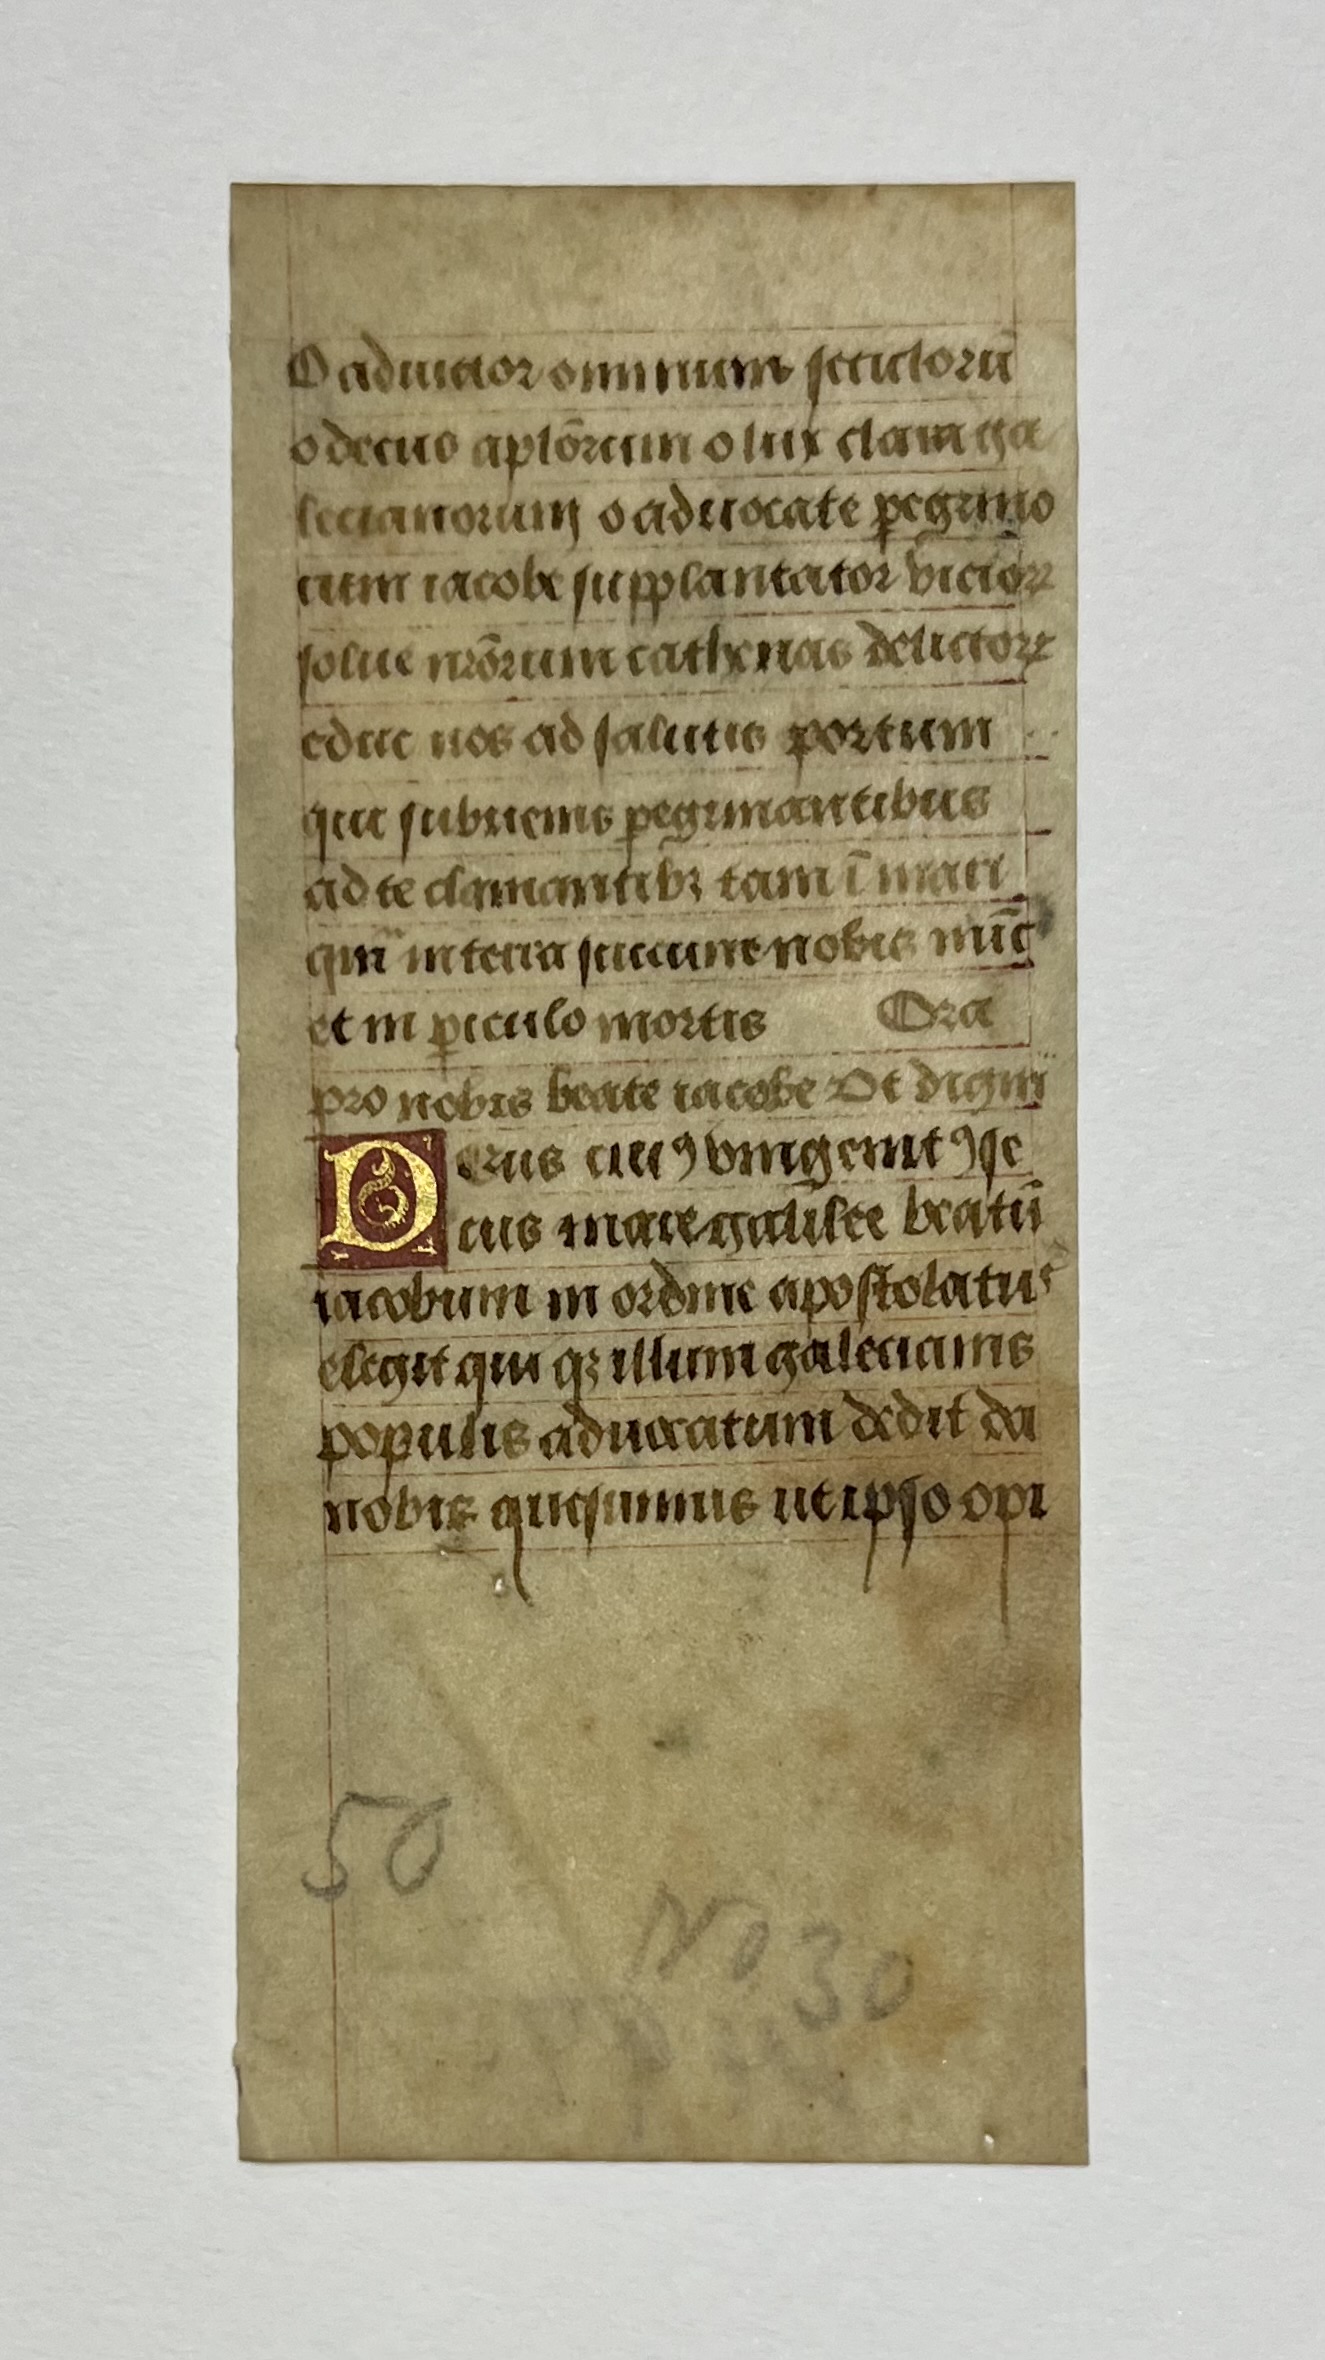 O adiutor omnium seculorū
o decus aplōrum o lux clara ga
lecianorum o aduocate p̲egrino
rum iacobe supplantator viciorꝝ
solue nrōrum cathenas delictorꝝ
et duc nos ad salutis portum
qui subuenis p̲egrinantibus
ad te clamantibꝫ tam ī mari
qm̄ in terra succurre nobis nūc
et in p̲iculo mortis Ora
pro nobis beate iacobe Vt digni
Deus cuiꝰ vnigenitꝰ se
cus mare galilee beatū
iacobum in ordine apostolatus
elegit qui qꝫ illum galecianis
populis aduocatum dedit da
nobis quesumus ut ipso opi
50
No 30